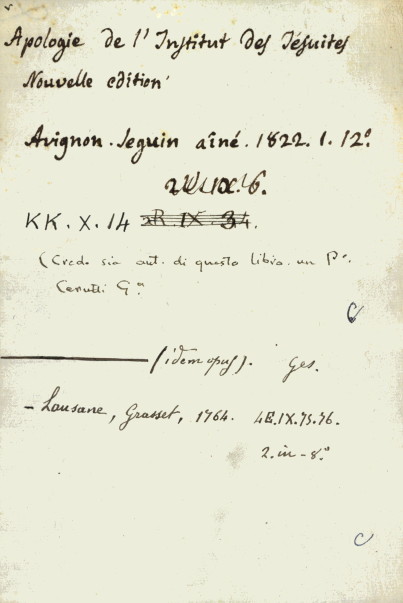 Apologie de l'Institut des Jésuites
Nouvelle edition
Avignon. Seguin aîné. 1822. 1. 12.°
KK. X. 14 2R. IX. 34.
(Credo sia aut. di questo libro un P.e
Cerutti G.
(idem opus). Ges.
- Lausane, Grasset, 1764. 4B.IX.75.76.
2. in - 8.°
C
C